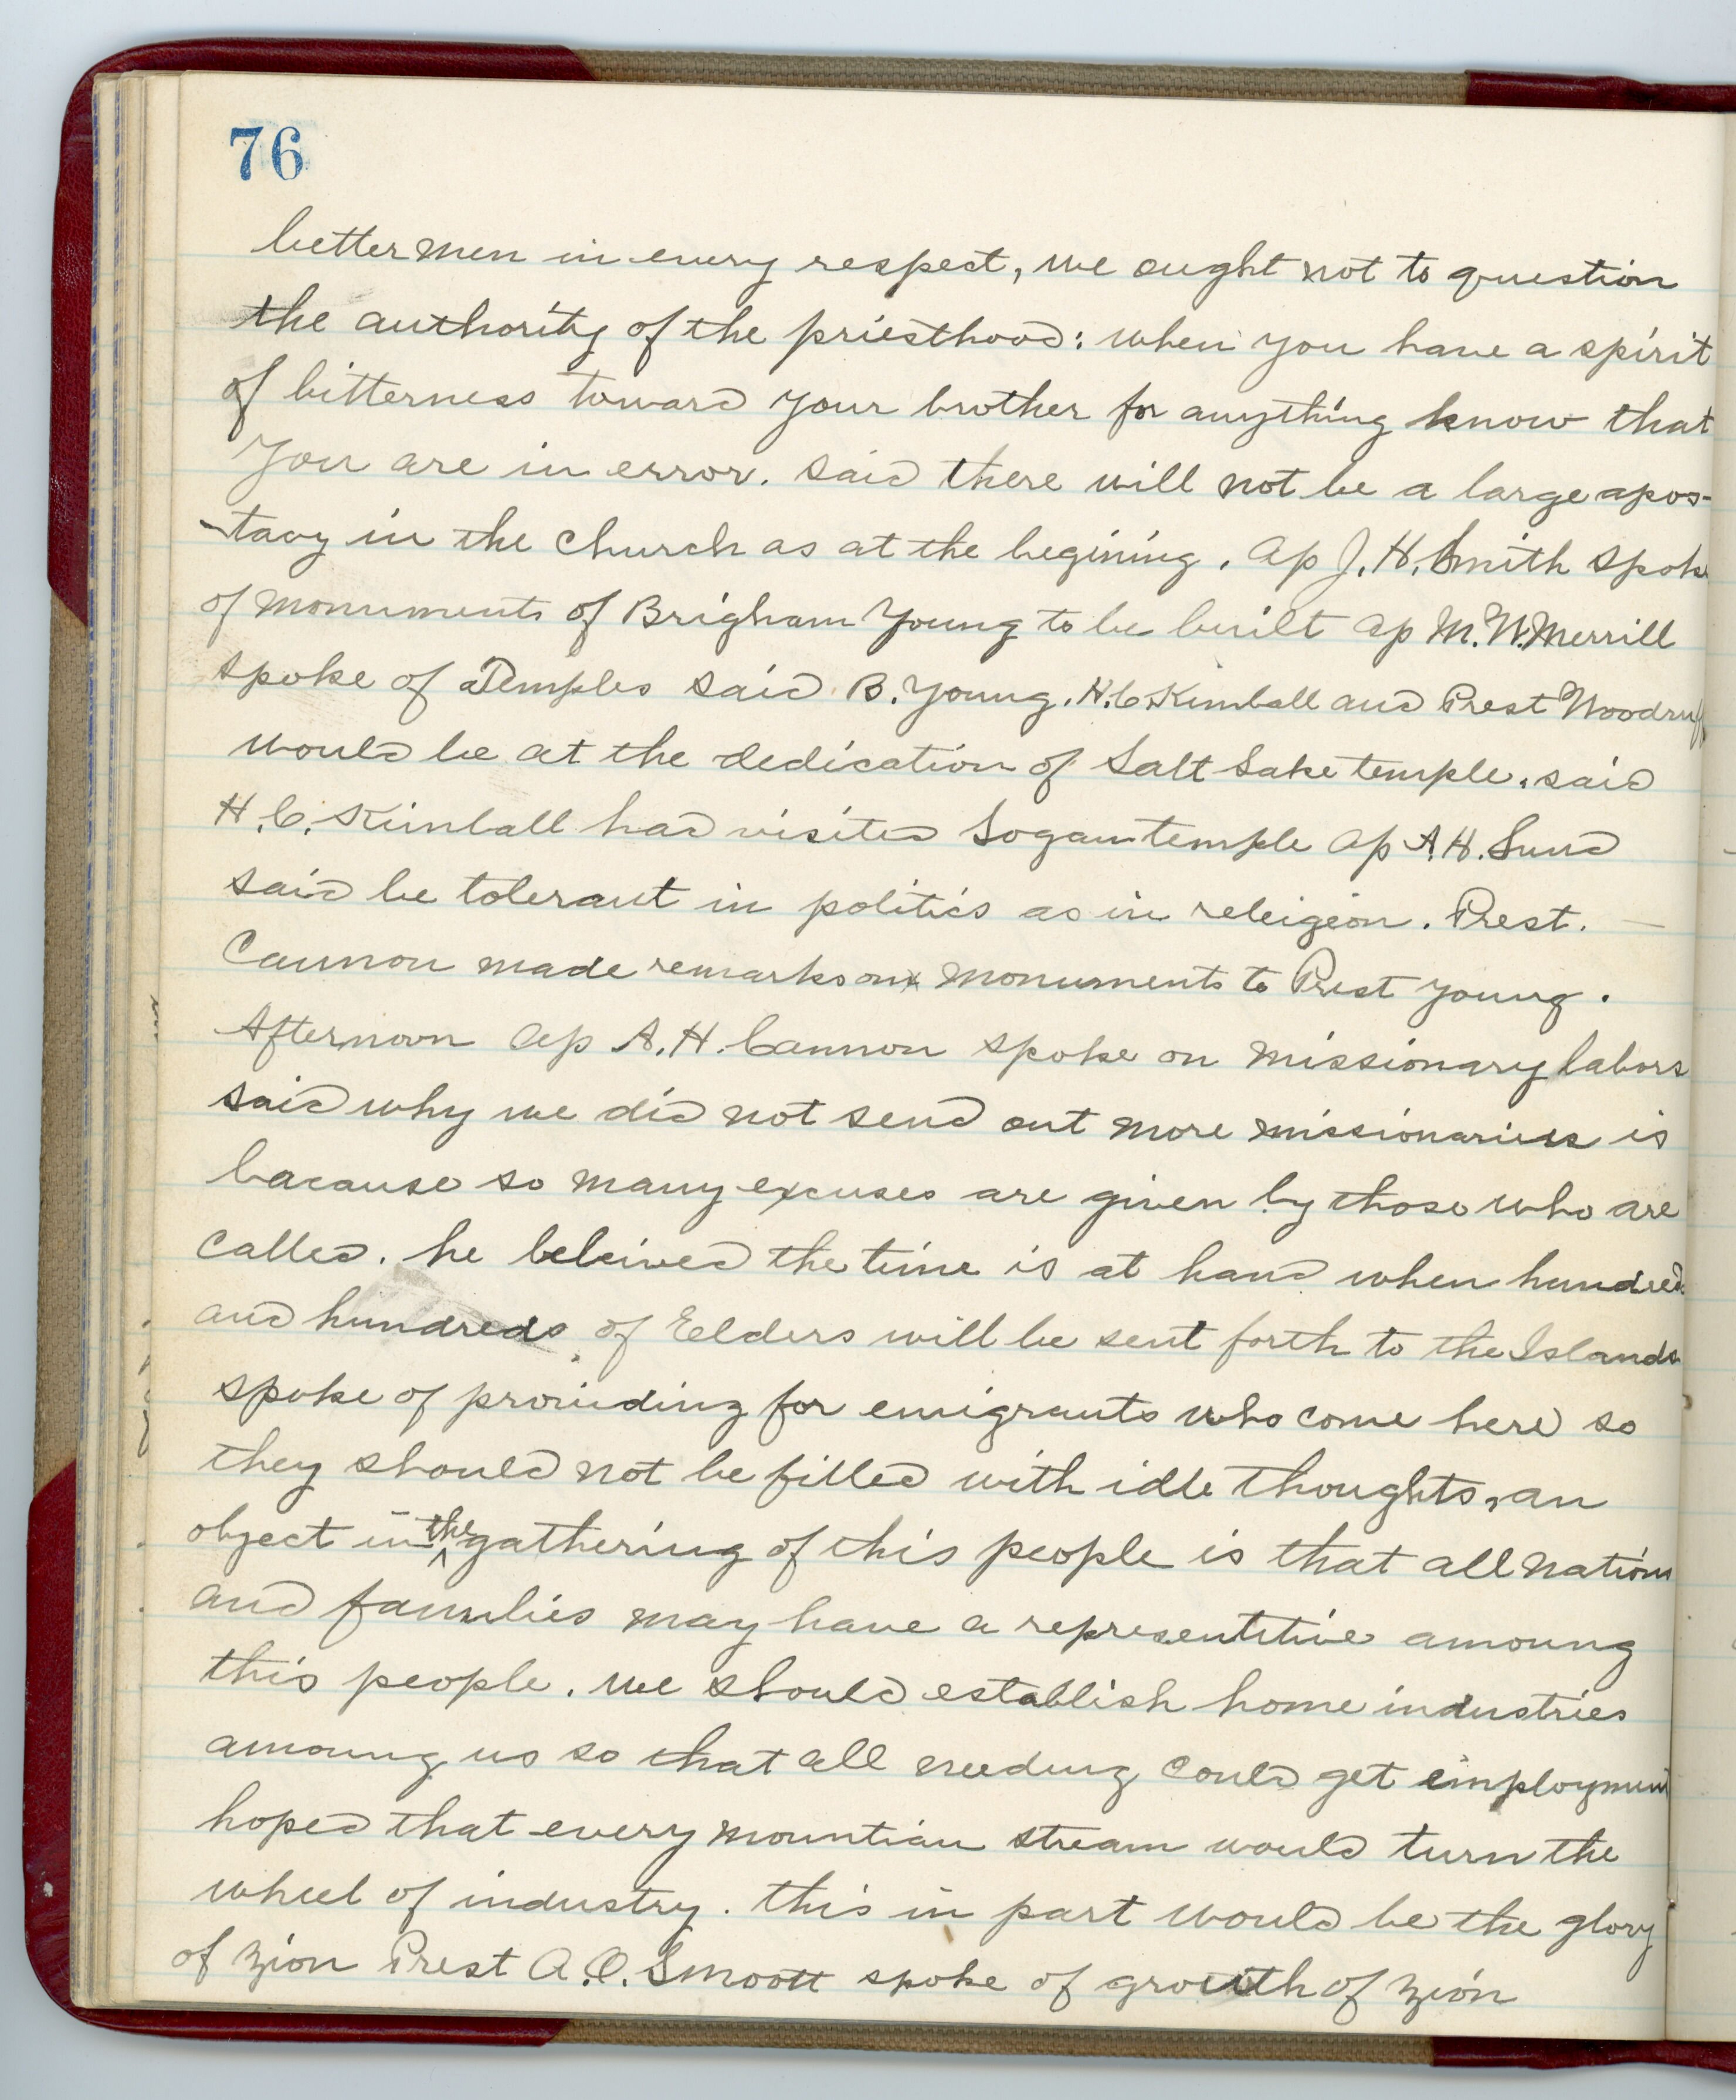 76
better men in every respect, we ought not to question
the authority of the priesthood: when you have a spirit
of bitterness toward your brother for anything know that
You are in error. said there will not be a large apos-
-tacy in the church as at the begining. Ap J. H. Smith spoke
of monuments of Brigham Young to be built Ap M. W. Merrill
spoke of Temples said B. Young. H. C. Kimball and Prest Woodruff
would be at the dedication of Salt Lake temple. said
H. C. Kimball had visited Logan temple Ap A. H. Lund
said be tolerant in politics as in releigeon. Prest.
Cannon made remarks on monuments to Prest Young.
Afternoon Ap A. H. Cannon spoke on missionary labors
said why we did not send out more missionaries is
bacause so many excuses are given by those who are
called. he beleived the time is at hand when hundred
and hundreds of Eelders will be sent forth to the Islands
spoke of prouiding for emigrants who come here so
they should not be filled with idle thoughts, an
object in the gathering of this people is that all nations
and families may have a representitive amoung
this people. we should establish home industries
amoung us so that all needing could get employment
hoped that every mountian stream would turn the
wheel of industry. this in part would be the glory
of zion Prest A. O. Smoott spoke of growth of zion